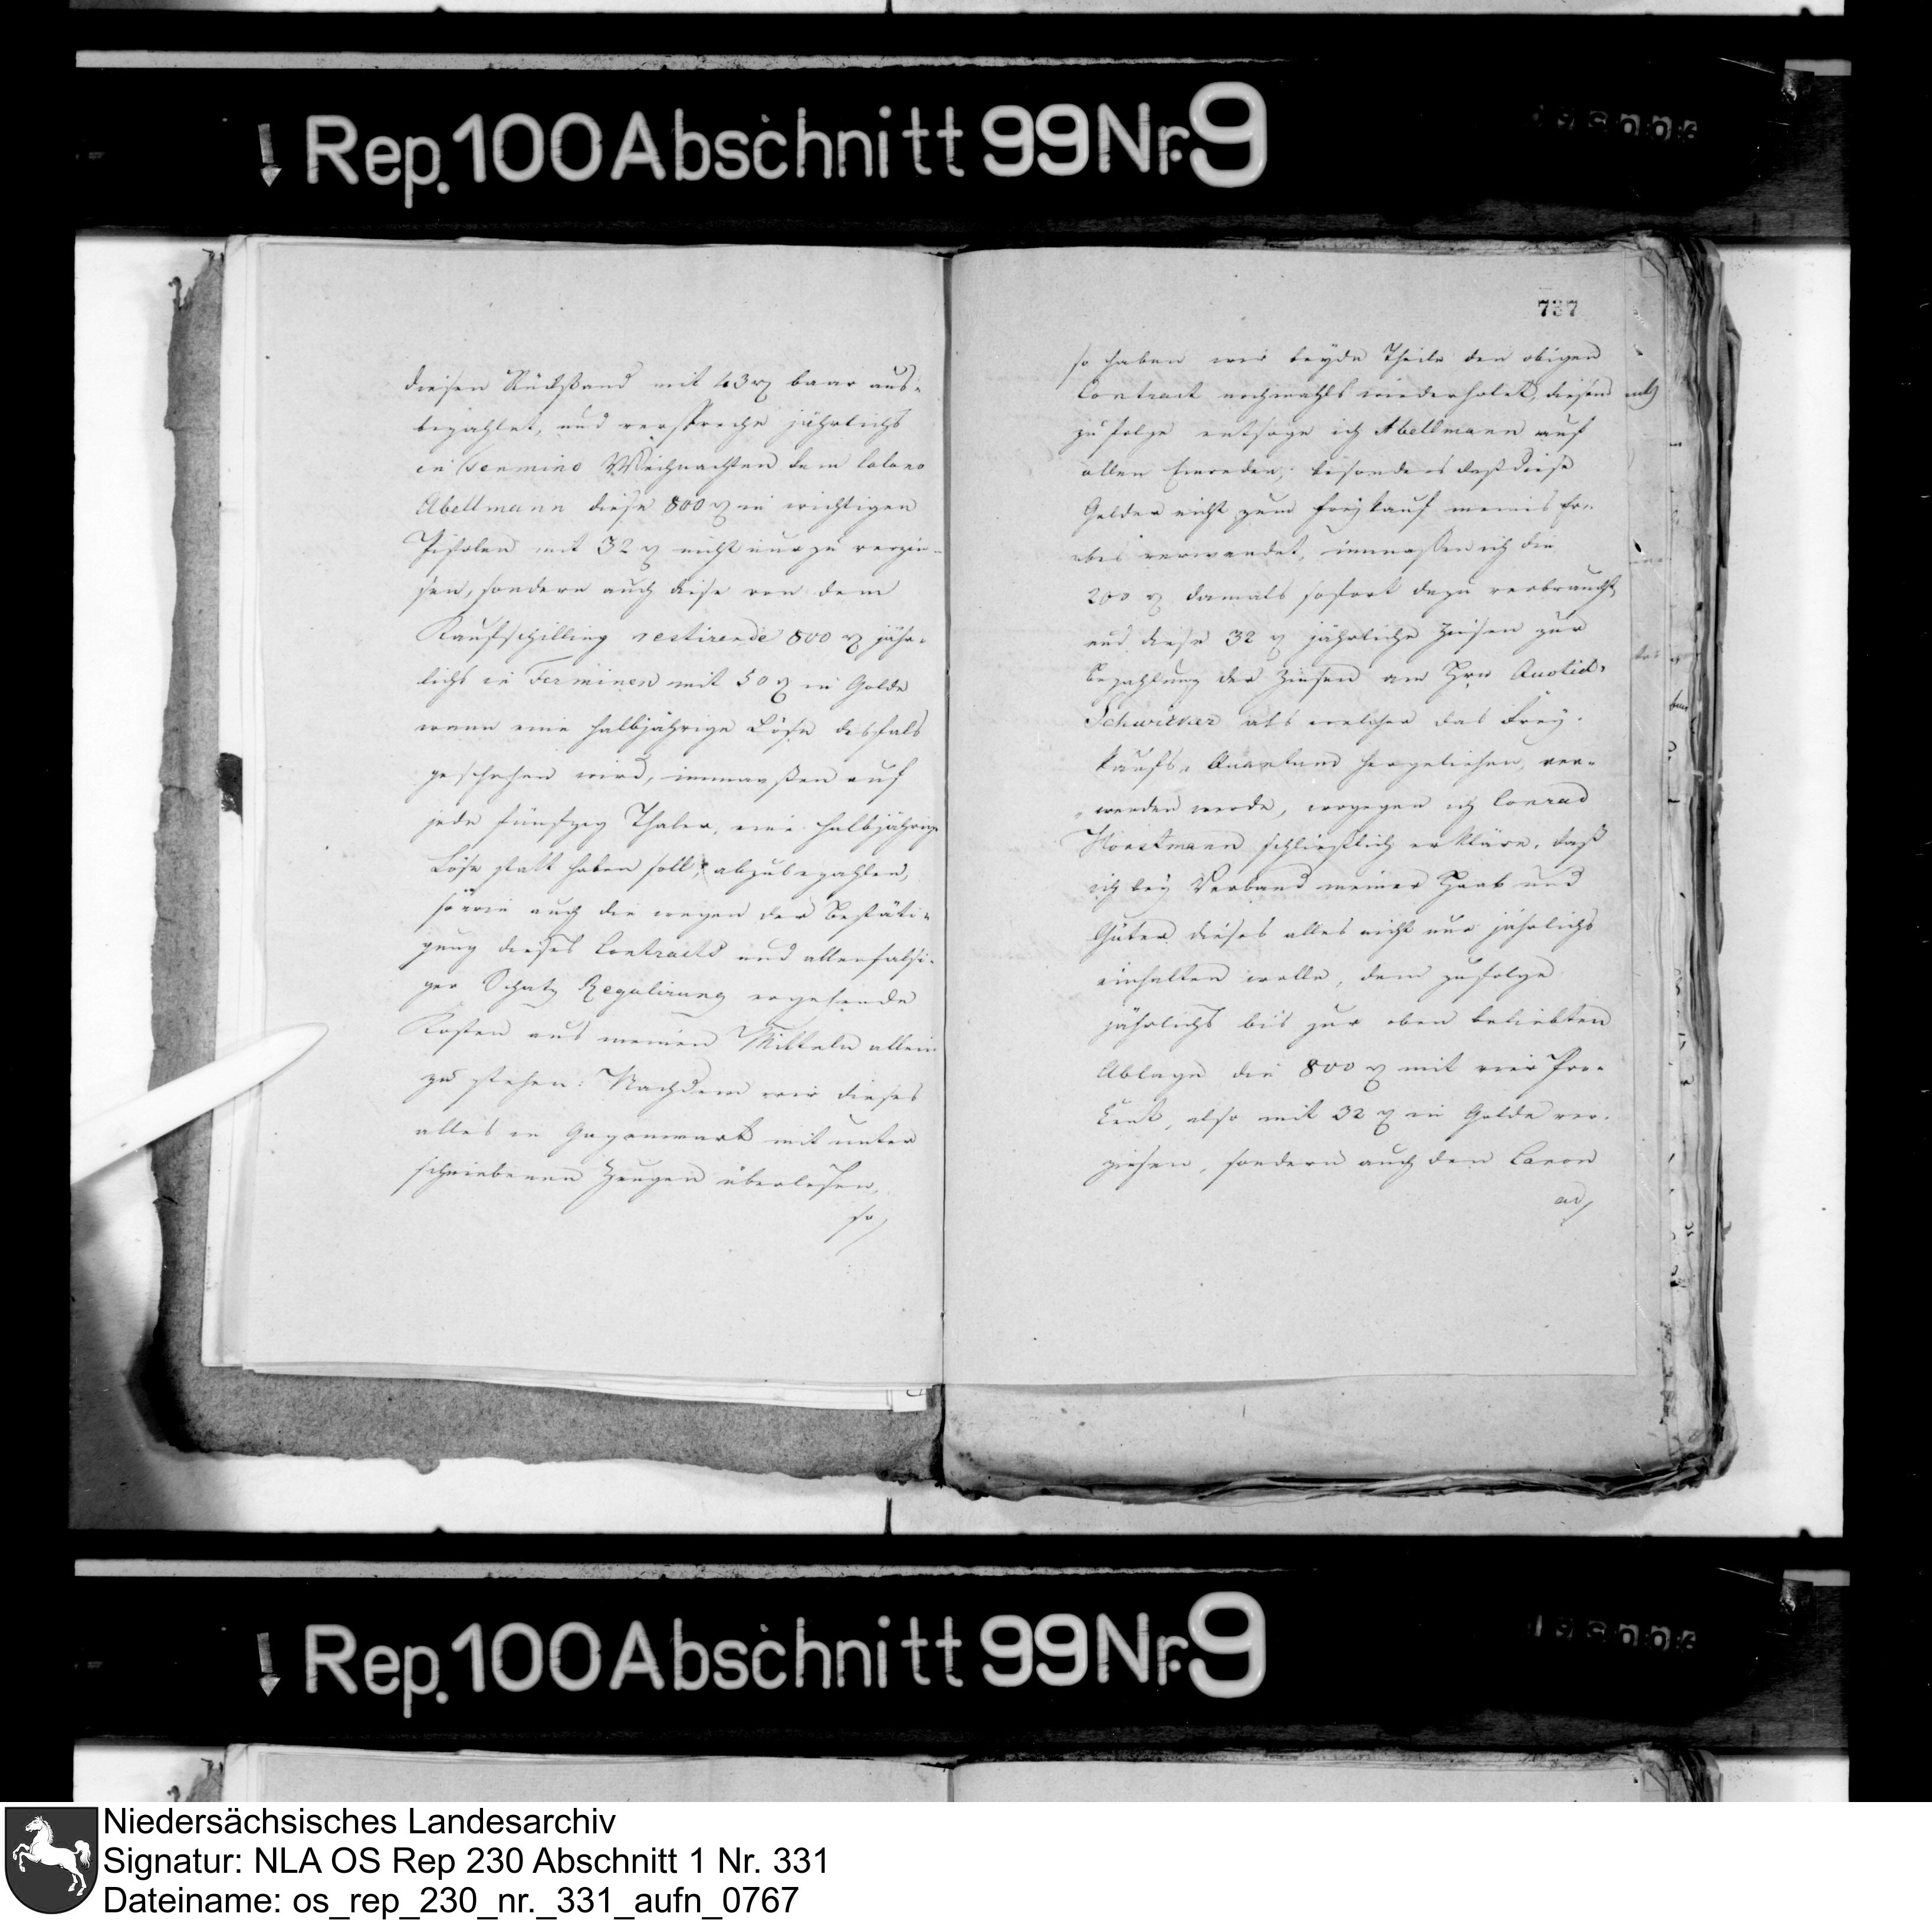 Rep. 100 Abschnitt 99 Nr. 9
diesen Rückstand mit 43 rt baar aus-
bezahlet, und verspreche jährlichs
in termino Weihnachten dem Colono
Abellmann diese 800 rt in wichtigen
Pistolen mit 32 rt nicht nur zu verzin-
sen, sondern auch diese von dem
Kaufschilling restirende 800 rt jähr-
lichs in Terminen mit 50 rt in Golde
wann eine halbjährige Löse desfals
geschehen wird, inmaaßen auf
jede funfzig Thaler, eine halbjährige
Löse statt haben soll, abzubezahlen,
sowie auch die wegen der Bestäti-
gung dieses Contracts und allenfalsi-
ger Schatz Regulirung ergehende
Kosten aus meinen Mitteln allein
zu stehen: Nachdem wir dieses
alles in Gegenwart mit unter
schriebenen Zeugen überlesen,
so
737
so haben wir beyde Theile den obigen
Contract nochmahls wiederholet, diesem
zufolge entsage ich Abellmann auf
allen Einreden, besonders daß diese
Gelder nicht zum Freykauf meines Er-
bes verwandet, inmaßen ich die
200 rt damals sofort dazu verbraucht,
und diese 32 rt jährliche Zinsen zur
Bezahlung der Zinsen am Hrn
als welcher das Frey-
kaufs-Quantum hergeliehen, ver-
wenden werde, wogegen ich Conrad
Horstmann schließlich erkläre, daß
ich bey Verband meiner Haab und
Güter dieses alles nicht nur jährlichs
einhalten wolle, dem zufolge
jährlichs bis zur oben beliebten
Ablage die 800 rt mit vier Pro-
Cent, also mit 32 rt in Golde ver-
zinsen, sondern auch den Canon
ad
Rep. 100 Abschnitt 99 Nr. 9
Niedersächsisches Landesarchiv
Signatur: NLA OS Rep 230 Abschnitt 1 Nr. 331
Dateiname: os_rep_230_nr._331_aufn_0767